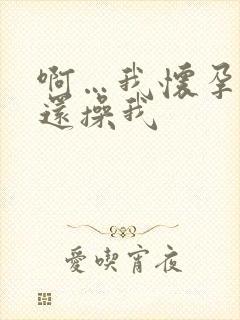 啊…我懷孕
還操我
愛喫宵夜